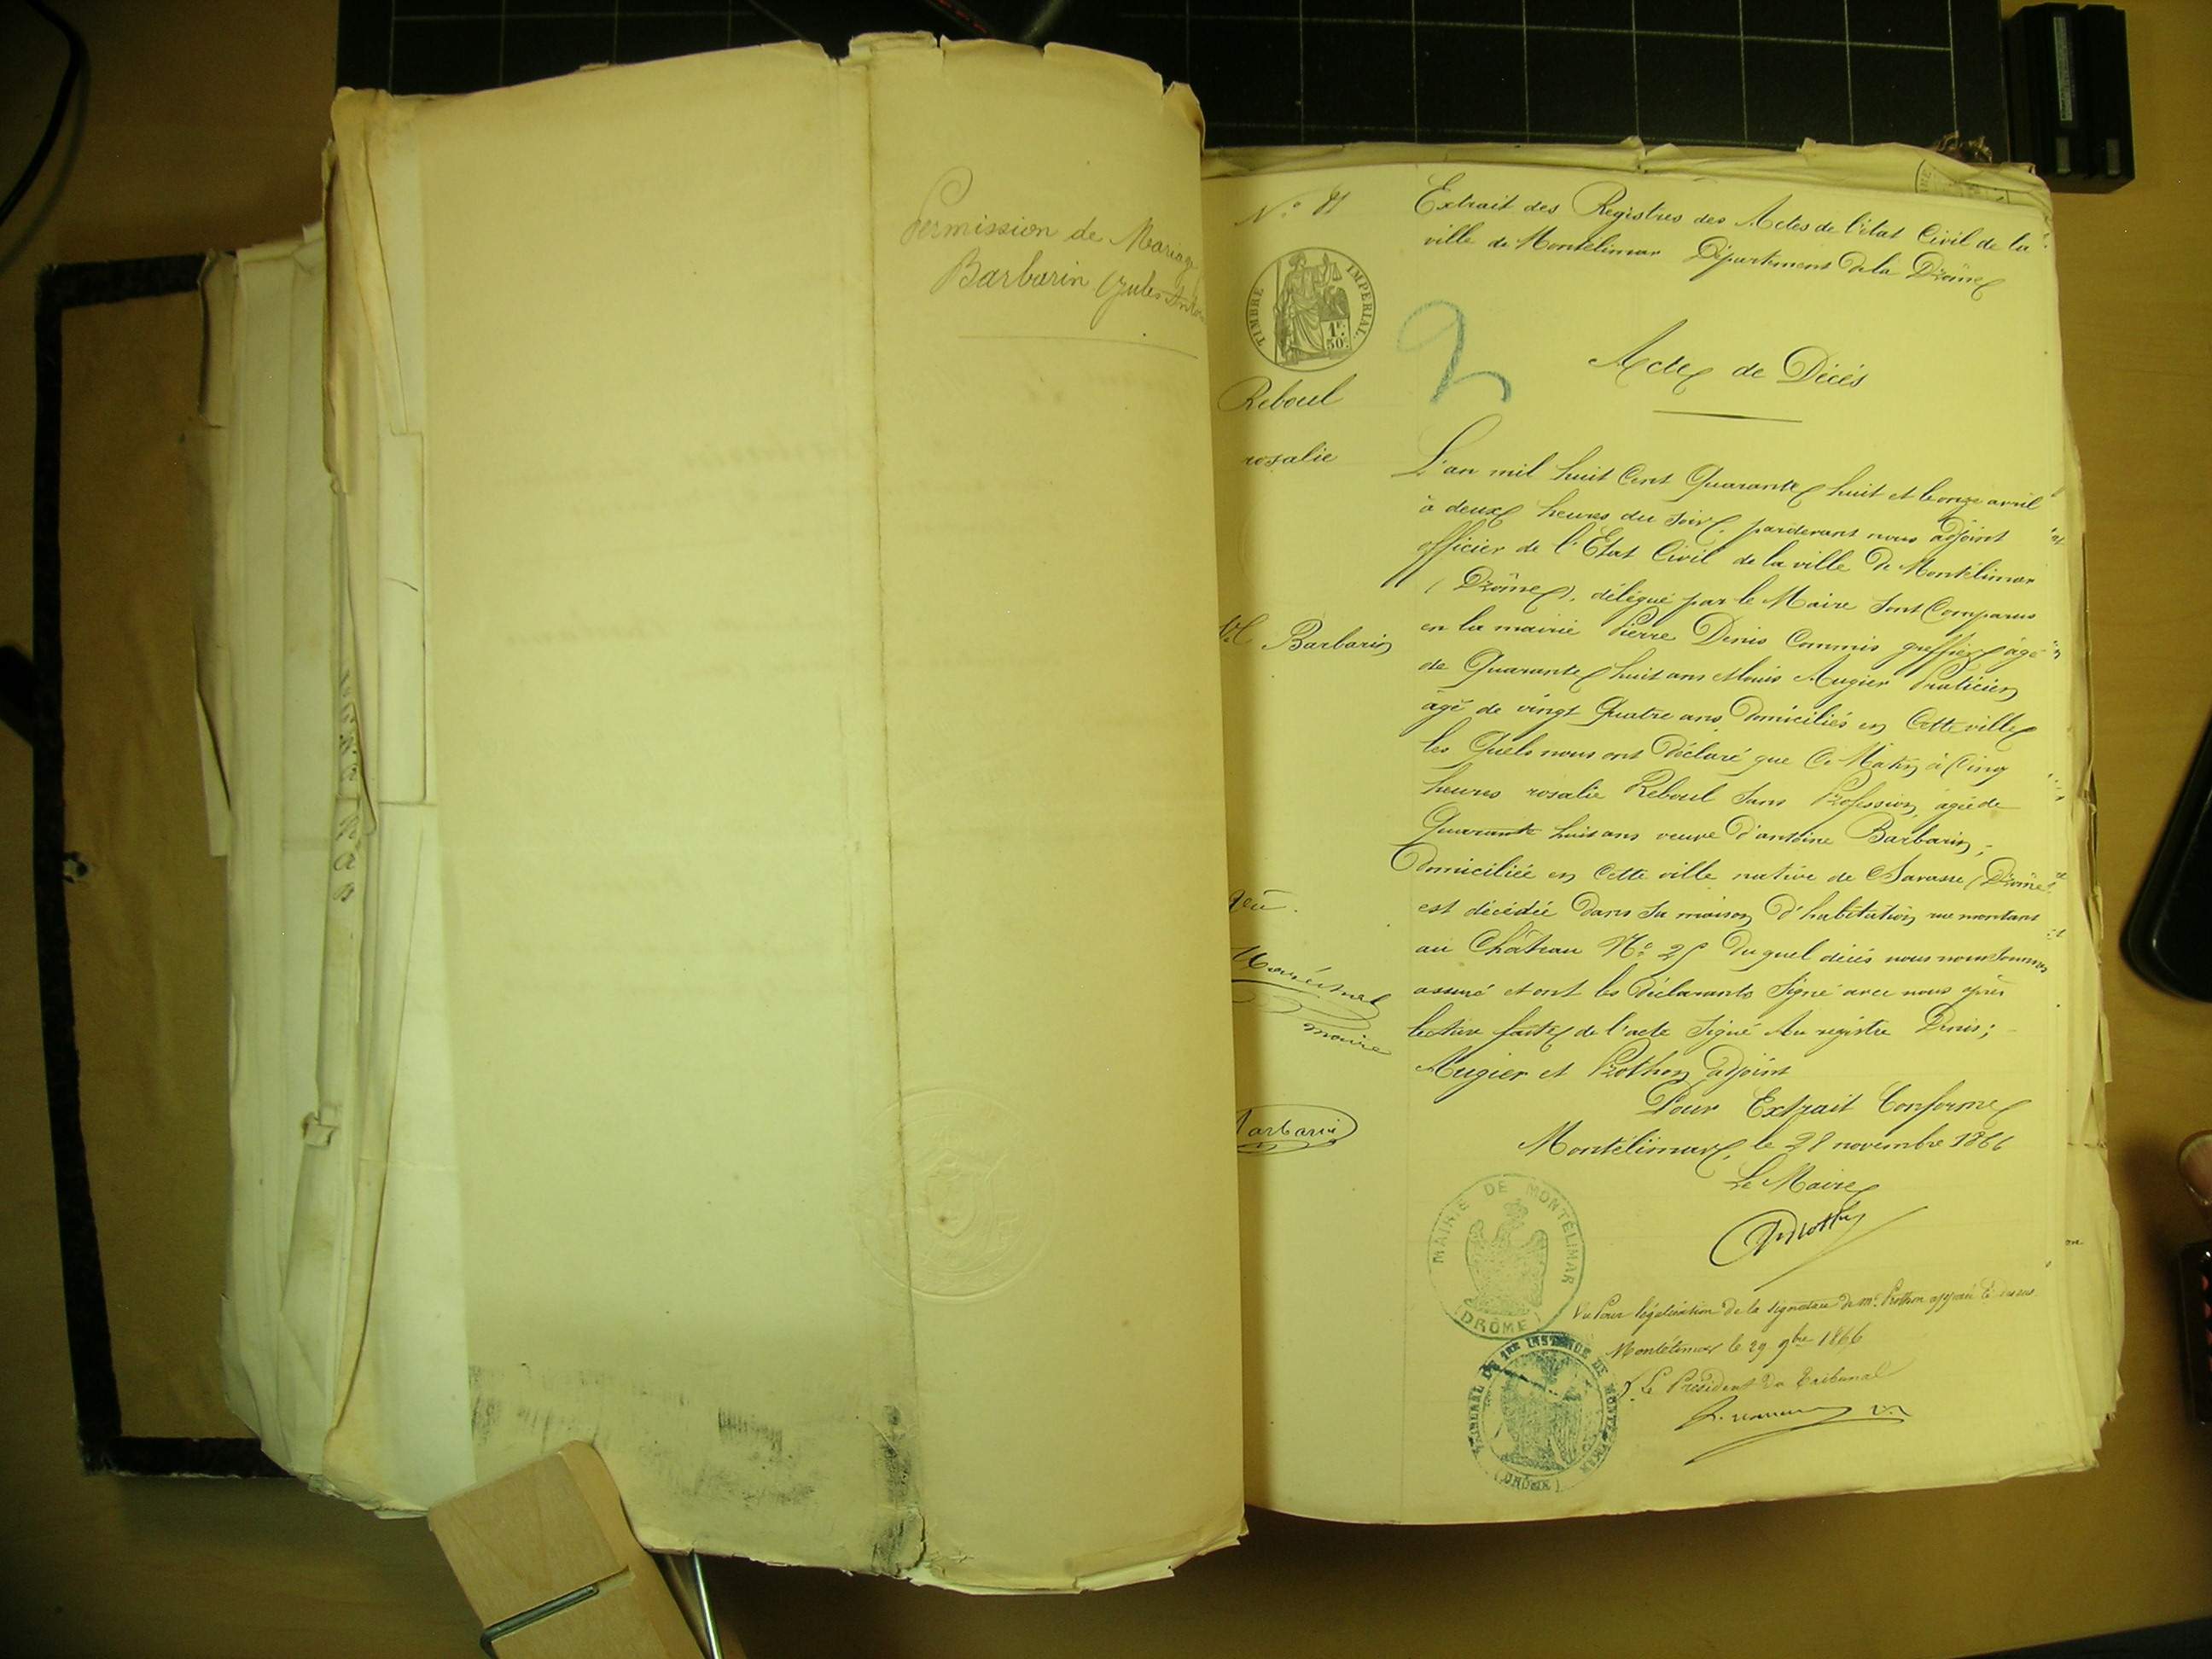 Permission de Mariage
Barbarin (Jules Antoi
N.º 81
Extrait des Registres des Actes de l'état Civil de la
ville de Montélimar Département de la Drôme
TIMBRE IMPERIAL
1F.
50C.
2
Acte de Décés
Reboul
rosalie
Barbarin
Maréchal
maire
Barbarin
L'an mil huit Cent Quarante huit et le onze avril
à deux heures du soir, pardevant nous adjoint
officier de l'Etat Civil de la ville de Montélimar
(Drôme), délégué par le Maire sont Comparus
en la mairie Pierre Denis Commis greffier âgé
de Quarante huit ans et louis Augier Praticien
âgé de vingt Quatre ans Domiciliés en Cette ville
les Quels nous ont Déclaré que Ce Matin à Cinq
heures rosalie Reboul sans Profession, agée de
Quarante huit ans veuve d'antoine Barbarin,
Domiciliée en Cette ville native de Savasse (Drôme)
est décédée dans sa maison d'habitation rue montant
au Château Nº 25 Du quel décès nous nous sommes
assuré et ont les Déclarants signé avec nous après
lecture faite de l'acte signé Au registre Denis;
Augier et Prothon adjoint
Pour Extrait Conforme
Montélimar, le 28 novembre 1866
Le Maire
MAIRIE DE MONTÉLIMAR
(DRÔME)
Vu Pour légalisation de la signature de Mr. Prothon apposée
Montélimar le 29 9bre 1866
Le Président du Tribunal
TRIBUNAL DE 1RE INSTANCE DE MONTÉLIMAR
(DRÔME)